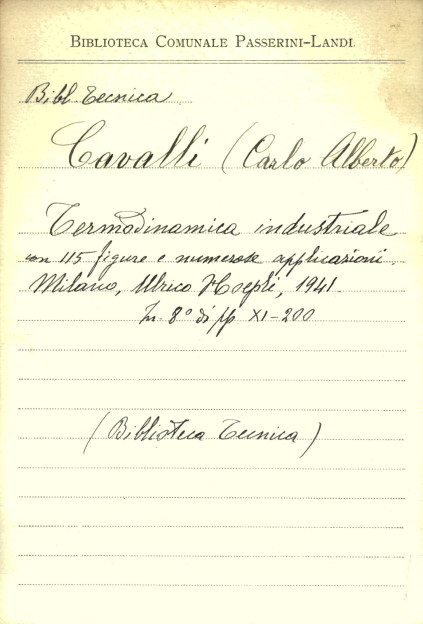 BIBLIOTECA COMUNALE PASSERINI-LANDI
Bibl Tecnica
Cavalli (Carlo Alberto)
Termodinamica industriale
con 115 figure e numerose applicazioni.
Milano, Ulrico Hoepli, 1941.
In 8° di pp XI-200
(Biblioteca Tecnica)